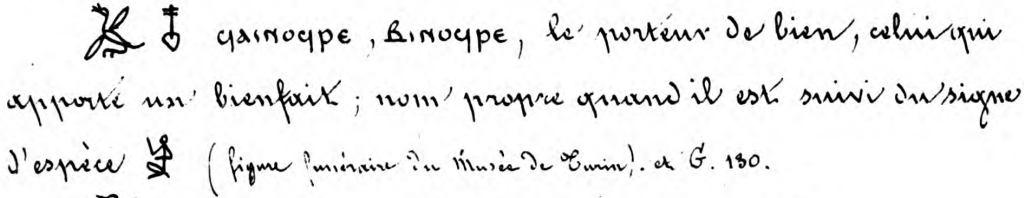 𓄤 ϥⲁⲓⲛⲟϥⲣⲉ, ⲃⲁⲓⲛⲟϥⲣⲉ, le porteur de bien, celui qui
apporte un bienfait ; nom propre quand il est suivi du signe
d'espèce 𓀀 (figure funéraire du Musée de Turin). et G. 130.